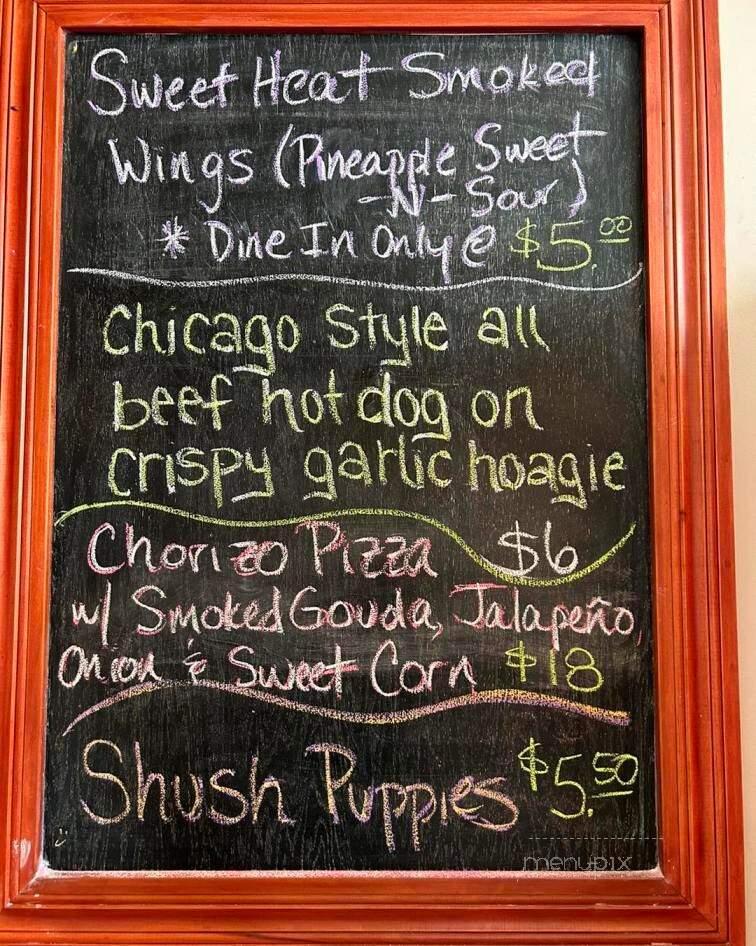 Sweet Heat Smoked
Wings (Pineapple Sweet
-N- Sour)
* Dine In Only @ $5.00
Chicago Style all
beef hot dog on
crispy garlic hoagie
$6
Chorizo Pizza
w/ Smoked Gouda, Jalapeño,
Onion & Sweet Corn $18
Shush Puppies $5.50
menupix